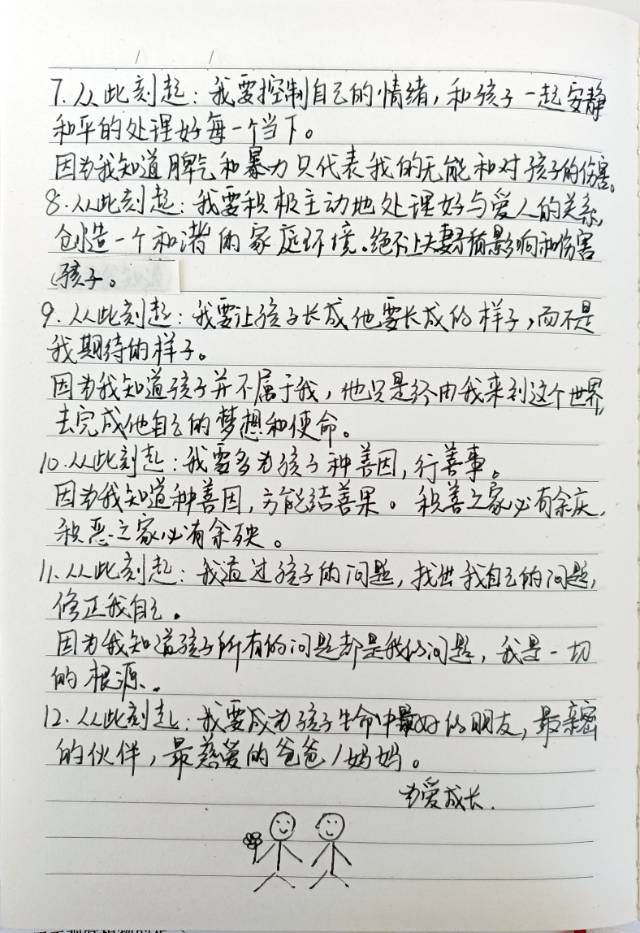 7.从此刻起：我要控制自己的情绪，和孩子一起安静
和平的处理好每一个当下。
因为我知道脾气和暴力只代表我的无能和对孩子的伤害。
8.从此刻起：我要积极主动地处理好与爱人的关系，
创造一个和谐的家庭环境。绝不让夫妻矛盾影响和伤害
孩子。
9.从此刻起：我要让孩子长成他要长成的样子，而不是
我期待的样子。
因为我知道孩子并不属于我，他只是经由我来到这个世界，
去完成他自己的梦想和使命。
10.从此刻起：我要多为孩子种善因，行善事。
因为我知道种善因，方能结善果。积善之家必有余庆，
积恶之家必有余殃。
11.从此刻起：我通过孩子的问题，找出我自己的问题，
修正我自己。
因为我知道孩子所有的问题都是我的问题，我是一切
的根源。
12.从此刻起：我要成为孩子生命中最好的朋友，最亲密
的伙伴，最慈爱的爸爸/妈妈。
为爱成长.